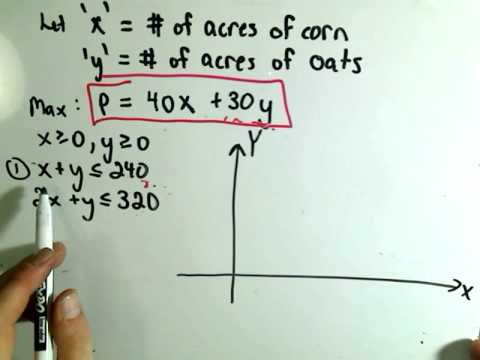 Let 'x' = # of acres of corn
'y' = # of acres of oats
Max: P = 40x + 30y
x ≥ 0, y ≥ 0
① x + y ≤ 240
2x + y ≤ 320
Y
x